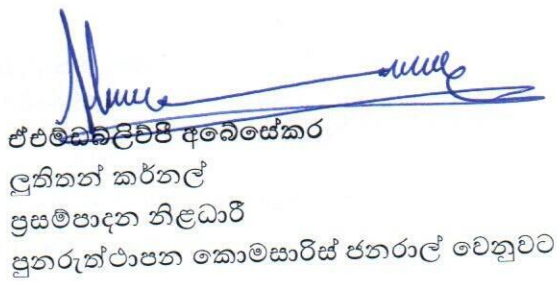 ඒඑම්ඩබ්ලිව්පී අබේසේකර
ලුතිතන් කර්නල්
ප්‍රසම්පාදන නිළධාරී
පුනරුත්ථාපන කොමසාරිස් ජනරාල් වෙනුවට